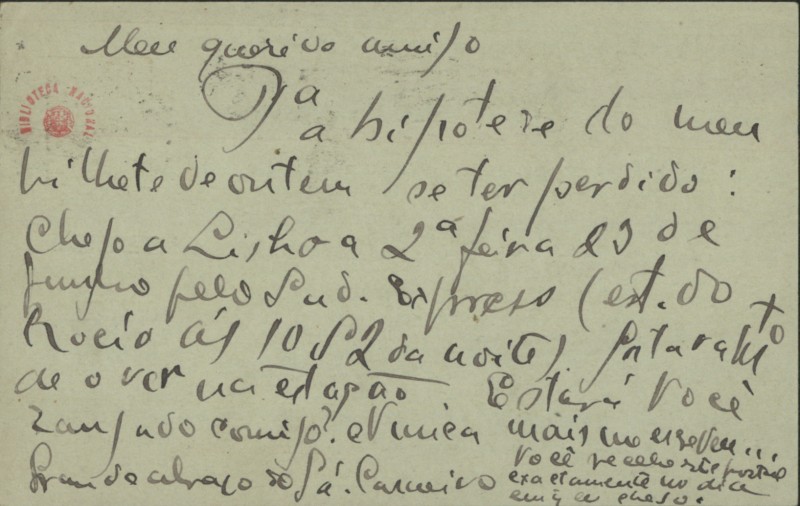 Meu querido amigo
Pª a hipotese do meu
bilhete de ontem se ter perdido:
Chego a Lisboa 2ª feira 23 de
junho pelo Sud-Express (est. do
Rocio ás 10 h 52 da noite). Gostara mtº
de o ver na estação. Estará Você
zangado comigo? Nunca mais me escreveu...
Grande abraço do Sá-Carneiro
Você recebe este postal
exactamente no dia
em q eu chego.
BIBLIOTECA NACIONAL